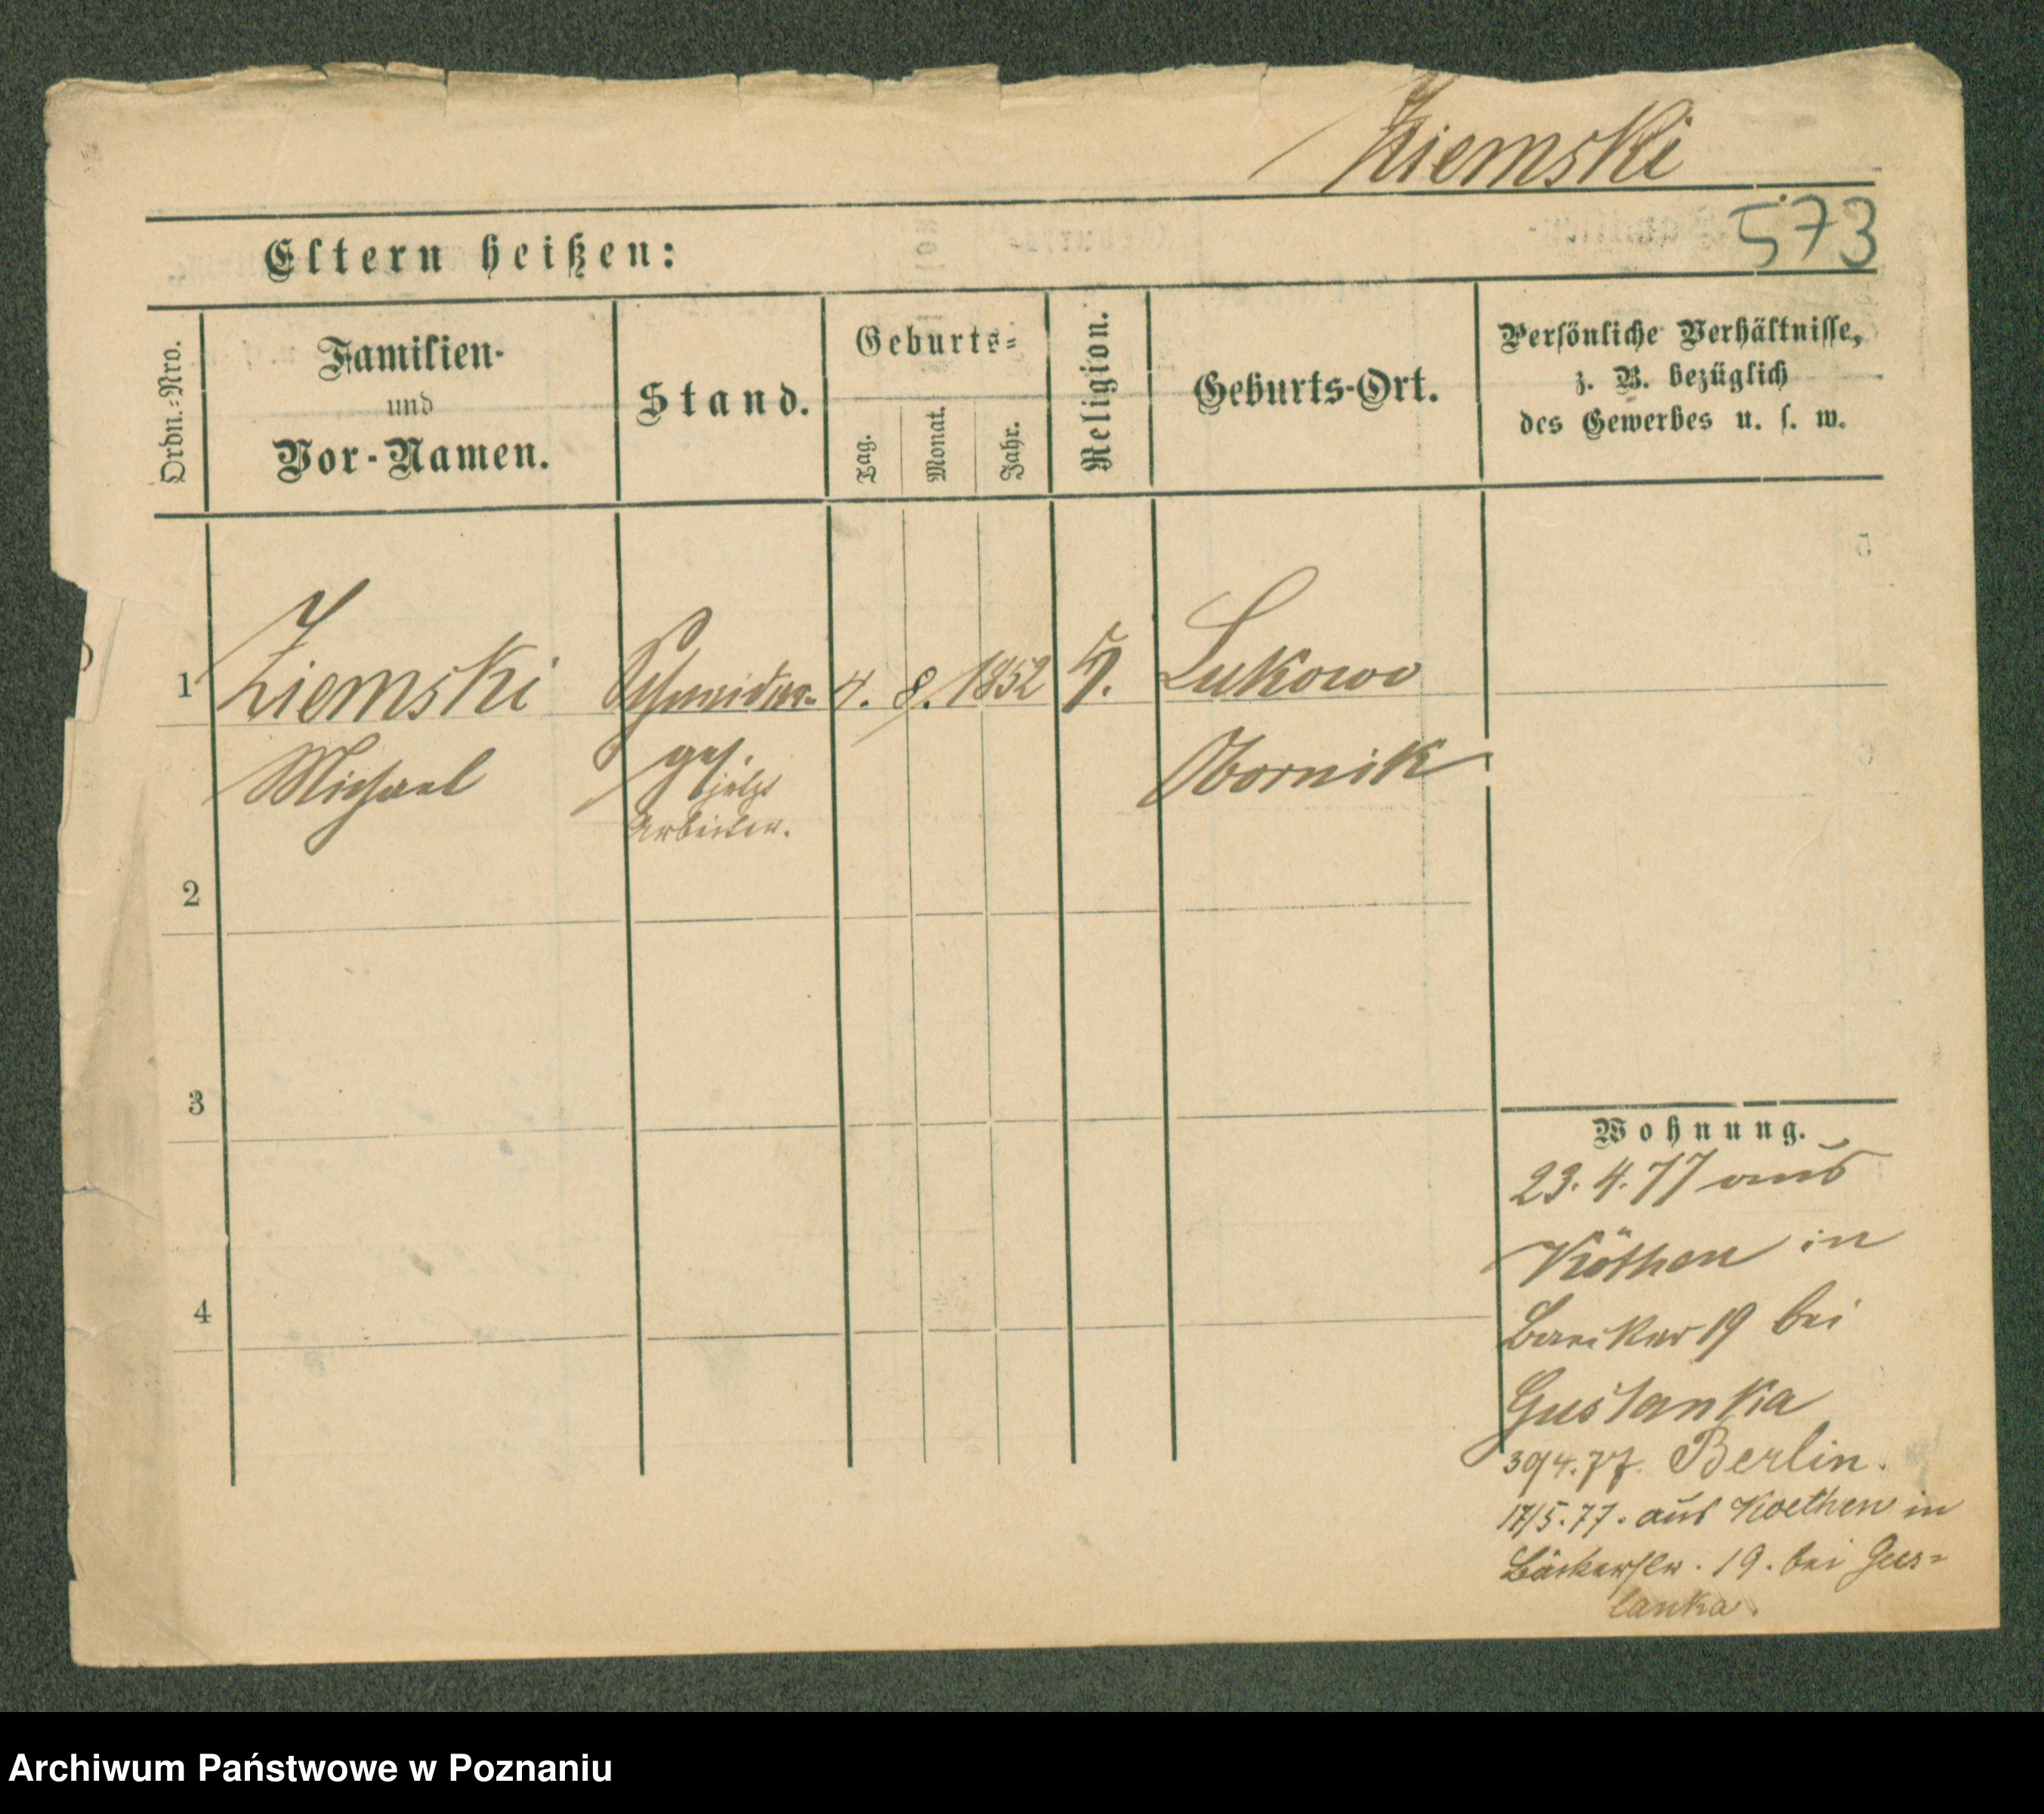 Ziemski
573
Eltern heißen:
Ordn.-Nro.
Familien-
und
Vor-Namen.
Stand.
Geburts-
Tag.
Monat.
Jahr.
Religion.
Geburts-Ort.
Persönliche Verhältnisse,
z. B. bezüglich
des Gewerbes u. s. w.
1 Ziemski Schneider- 4. 8. 1852 Lukowo
Michael ges. Obornik
jetzt
Arbeiter.
2
3
4
Wohnung.
23. 4. 77 aus
Köthen in
19 bei
Guslanka
30/4. 77. Berlin.
17/5. 77. aus Koethen in
Bäckerstr. 19. bei Gus-
lanka.
Archiwum Państwowe w Poznaniu